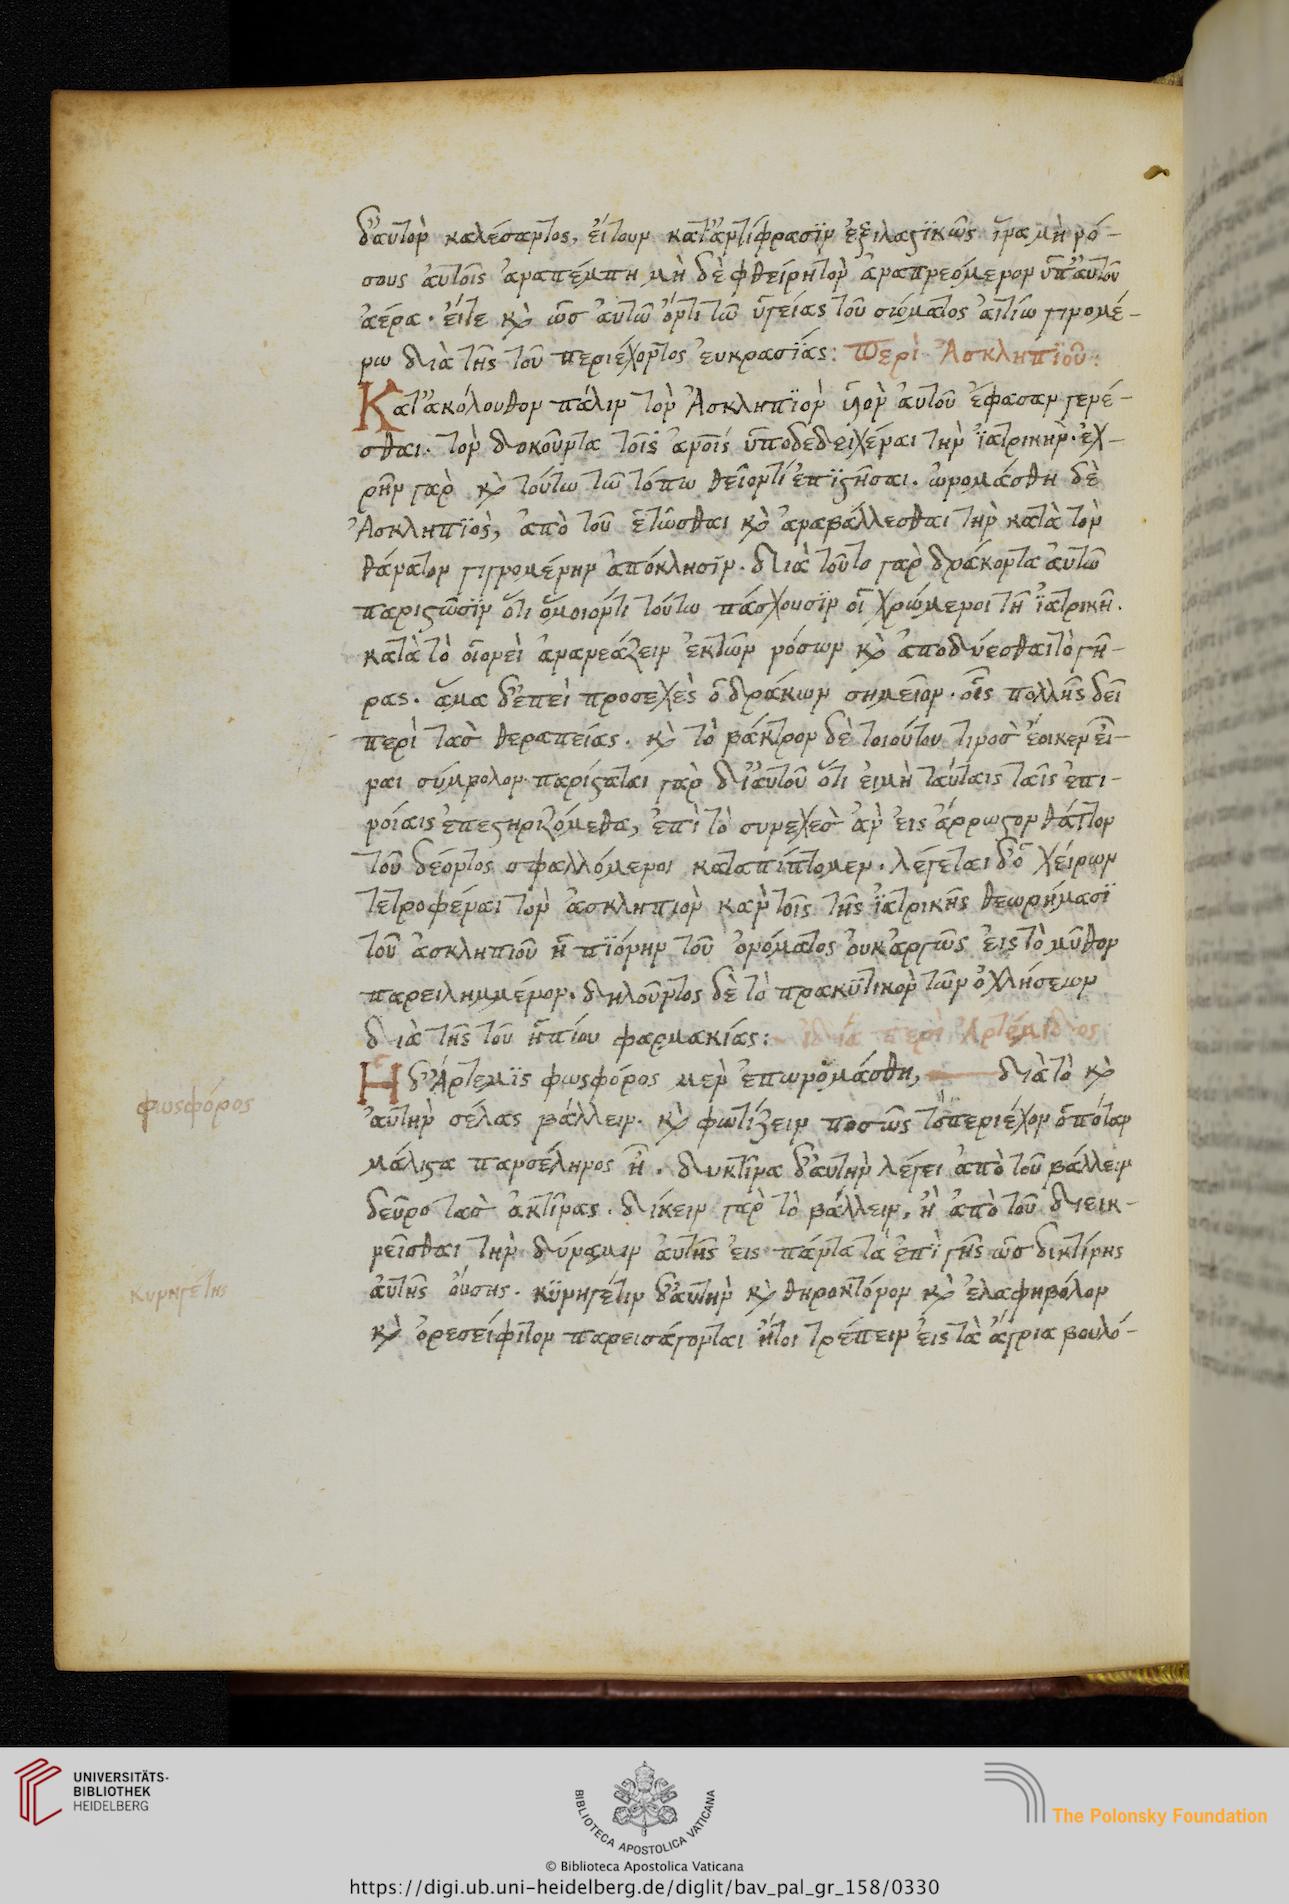 δ' αὐτὸν καλέσαντος, εἴτουν κατ' ἀντίφρασϊν ἐξιλαστϊκῶς ἵνα μὴ νό-
σους αὐτοῖς ἀναπέμπη μὴ δὲ φθείρη τὸν ἀναπνεόμενον ὑπ' αὐτοῦ
ἀέρα. εἴτε κὶ ὡσ αὐτῶ ὄντι τῶ ὑγείας τοῦ σώματος αἰτίω γινομέ-
νω διὰ τῆς τοῦ περιέχοντος εὐκρασϊάς: Περὶ Ἀσκληπϊοῦ:
Κατ' ἀκόλουθον πάλιν τὸν Ἀσκληπϊὸν ὑὸν αὐτοῦ ἔφασαν γενέ-
σθαι. τὸν δοκοῦντα τοῖς ἀνοῖς ὑποδεδειχέναι τὴν ἰατρικὴν. ἐχ-
ρῆν γαρ κὶ τούτω τῶ τόπω θεῖον τί ἐπϊστῆσαι. ὠνομάσθη δὲ
Ἀσκληπϊὸς, ἀπὸ τοῦ ἐτῶσθαι κὶ ἀναβάλλεσθαι τὴν κατὰ τὸν
θάνατον γιγνομένην ἀπόκλησϊν. διὰ τοῦτο γὰρ δράκοντα αὐτῶ
παριστῶσϊν ὅτι ὅμοιόν τι τούτω πάσχουσϊν οἱ χρώμενοι τῆ ἰατρικῆ.
κατὰ τὸ οἱονεὶ ἀνανεάζειν ἐκ τῶν νόσων κὶ ἀποδύεσθαι τὸ γῆ-
ρας. ἅμα δ' ἐπεὶ προσεχὲς ὁ δράκων σημεῖον. οἷς πολλῆς δεῖ
περὶ τασ θεραπείας. κὶ τὸ βάκτρον δὲ τοιούτου τινοσ ἔοικεν εἶ-
ναι σύμβολον. παρίσταται γαρ δι' αὐτοῦ ὅτι εἰ μὴ ταύταις ταῖς ἐπι-
νοίαις ἐπεστηριζόμεθα, ἐπὶ τὸ συνεχὲσ ἂν εἰς ἄρρωστον θᾶττον
τοῦ δέοντος σφαλλόμενοι καταπίπτομεν. λέγεται δ' ὁ χείρων
τετροφέναι τὸν ἀσκληπιὸν κἀν τοῖς τῆς ἰατρικῆς θεωρήμασϊ
τοῦ ἀσκληπιοῦ ἢ πϊόνην τοῦ ὀνόματος οὐκ ἀργῶς εἰς τὸ μῦθον
παρειλημμένον. δηλοῦντος δὲ τὸ πραϋτικὸν τῶν ὀχλήσεων
διὰ τῆς τοῦ ἠπίου φαρμακίας: ἰδία περὶ Ἀρτέμιδος
Η δ' Ἄρτεμϊς φωςφόρος μεν ἐπωνομάσθη, διὰ τὸ κὶ
φωςφόρος
αὐτὴν σέλας βάλλειν. κὶ φωτίζειν ποσῶς τὸ περιέχον ὁπόταν
μάλιστα πανσέληνος ἦ. δυκτῖνα δ' αὐτὴν λέγει ἀπὸ τοῦ βάλλειν
δεῦρο τασ ἀκτῖνας. δίκειν γαρ τὸ βάλλειν, ἢ ἀπὸ τοῦ διεικ-
νεῖσθαι τὴν δύναμιν αὐτῆς εἰς πάντα τὰ ἐπὶ γῆς ὡσ δικτίνης
αὐτῆς οὔσης. κϋνηγέτιν δ' αὐτὴν κὶ θηροκτόνον κὶ ἐλαφηβόλον
κυνηγέτης
κὶ ὀρεσείφϊτον παρεισάγονται ἤτοι τρέπειν εἰς τὰ ἄγρια βουλό-
UNIVERSITÄTS-
BIBLIOTHEK
HEIDELBERG
BIBLIOTECA APOSTOLICA VATICANA
The Polonsky Foundation
© Biblioteca Apostolica Vaticana
https://digi.ub.uni-heidelberg.de/diglit/bav_pal_gr_158/0330